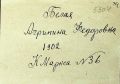 Белая
Агрипина Федоровна
1902
К Маркса № 36